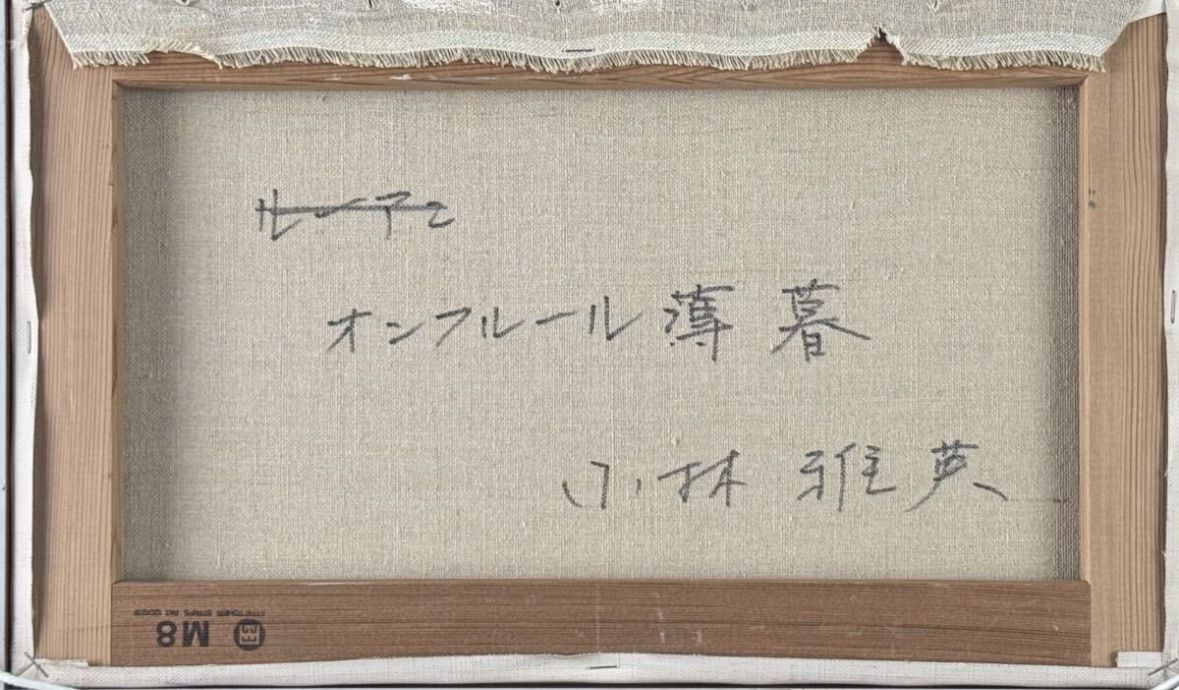 ルーアン
オンフルール 薄暮
小林 雅英
M8